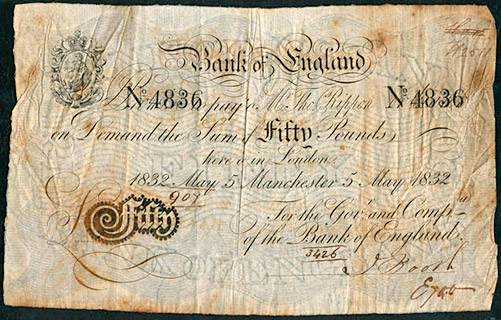 Bank of England
No 4836 I pay Mr. Tho. Rippon No 4836
on Demand the Sum of Fifty Pounds,
here or in London,
1832 May 5 Manchester 5 May 1832
907
Fifty
For the Govr. and Compa.
of the Bank of England.
3426
J Booth